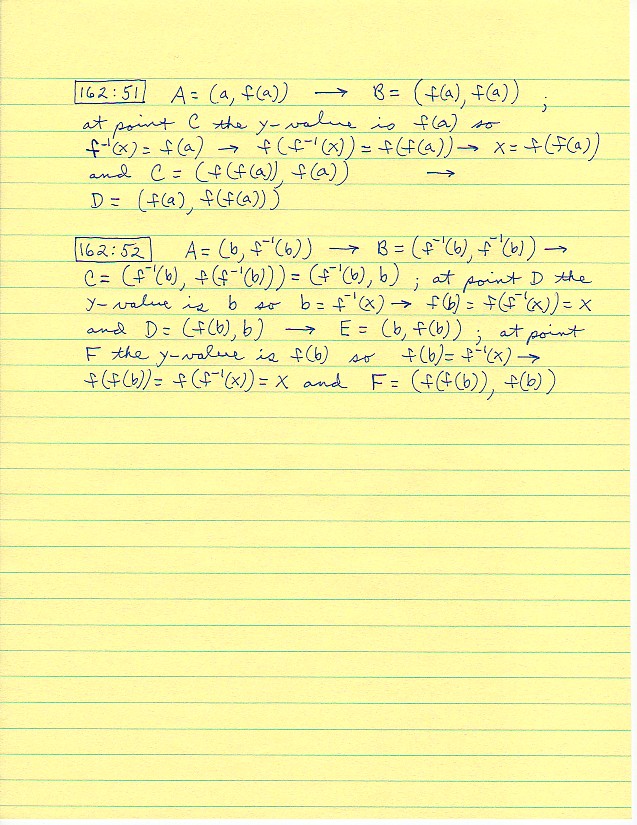 162:51 A = (a, f(a)) → B = (f(a), f(a)) ;
at point C the y-value is f(a) so
f⁻¹(x) = f(a) → f(f⁻¹(x)) = f(f(a)) → x = f(f(a))
and C = (f(f(a)), f(a)) →
D = (f(a), f(f(a)))
162:52 A = (b, f⁻¹(b)) → B = (f⁻¹(b), f⁻¹(b)) →
C = (f⁻¹(b), f(f⁻¹(b))) = (f⁻¹(b), b) ; at point D the
y-value is b so b = f⁻¹(x) → f(b) = f(f⁻¹(x)) = x
and D = (f(b), b) → E = (b, f(b)) ; at point
F the y-value is f(b) so f(b) = f⁻¹(x) →
f(f(b)) = f(f⁻¹(x)) = x and F = (f(f(b)), f(b))